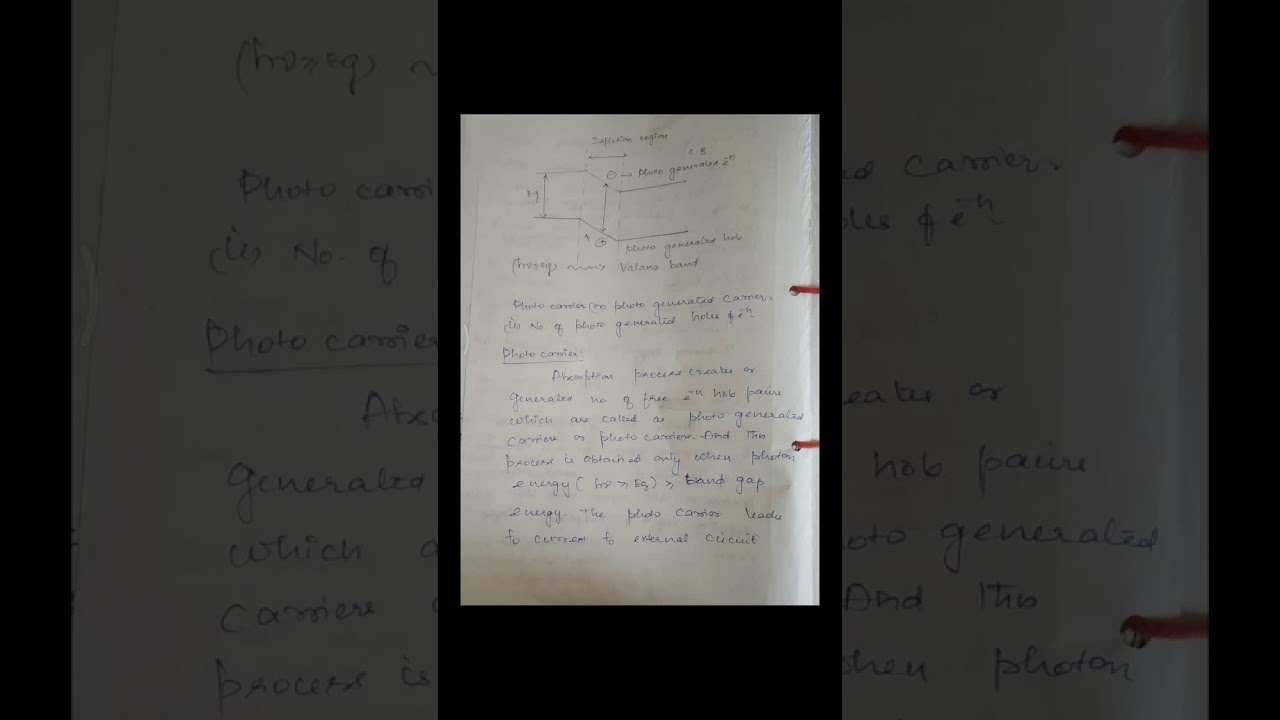 Depletion region
C.B
⊖ → photo generated e⁻n
Eg
⊕
photo generated hole
(hν≥Eg) Valana band
Photo carrier (or) photo generated carrier.
(is No. of photo generated holes & e⁻n
Photo carrier:
Absorption process creates or
generated no of free e⁻n hole pairs
which are called as photo generated
carriers or photo carriers. And this
process is obtained only when photon
energy (hν ≥ Eg) ≥ band gap
energy. The photo carrier leads
to current to external circuit